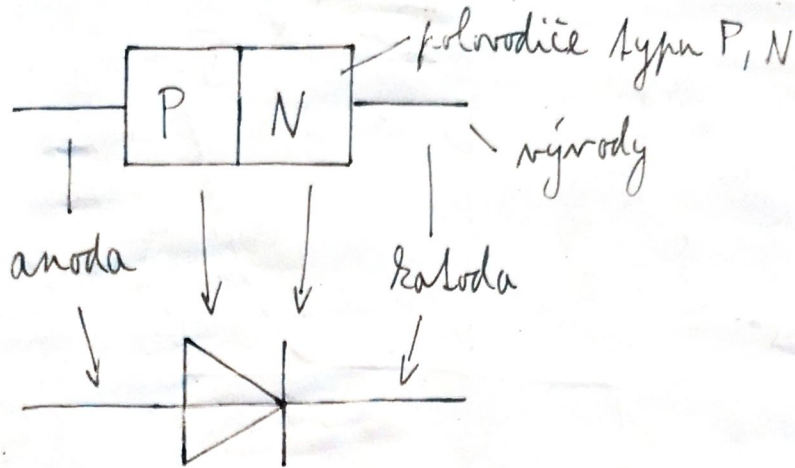 polovodiče typu P, N
P N
vývody
anoda
katoda